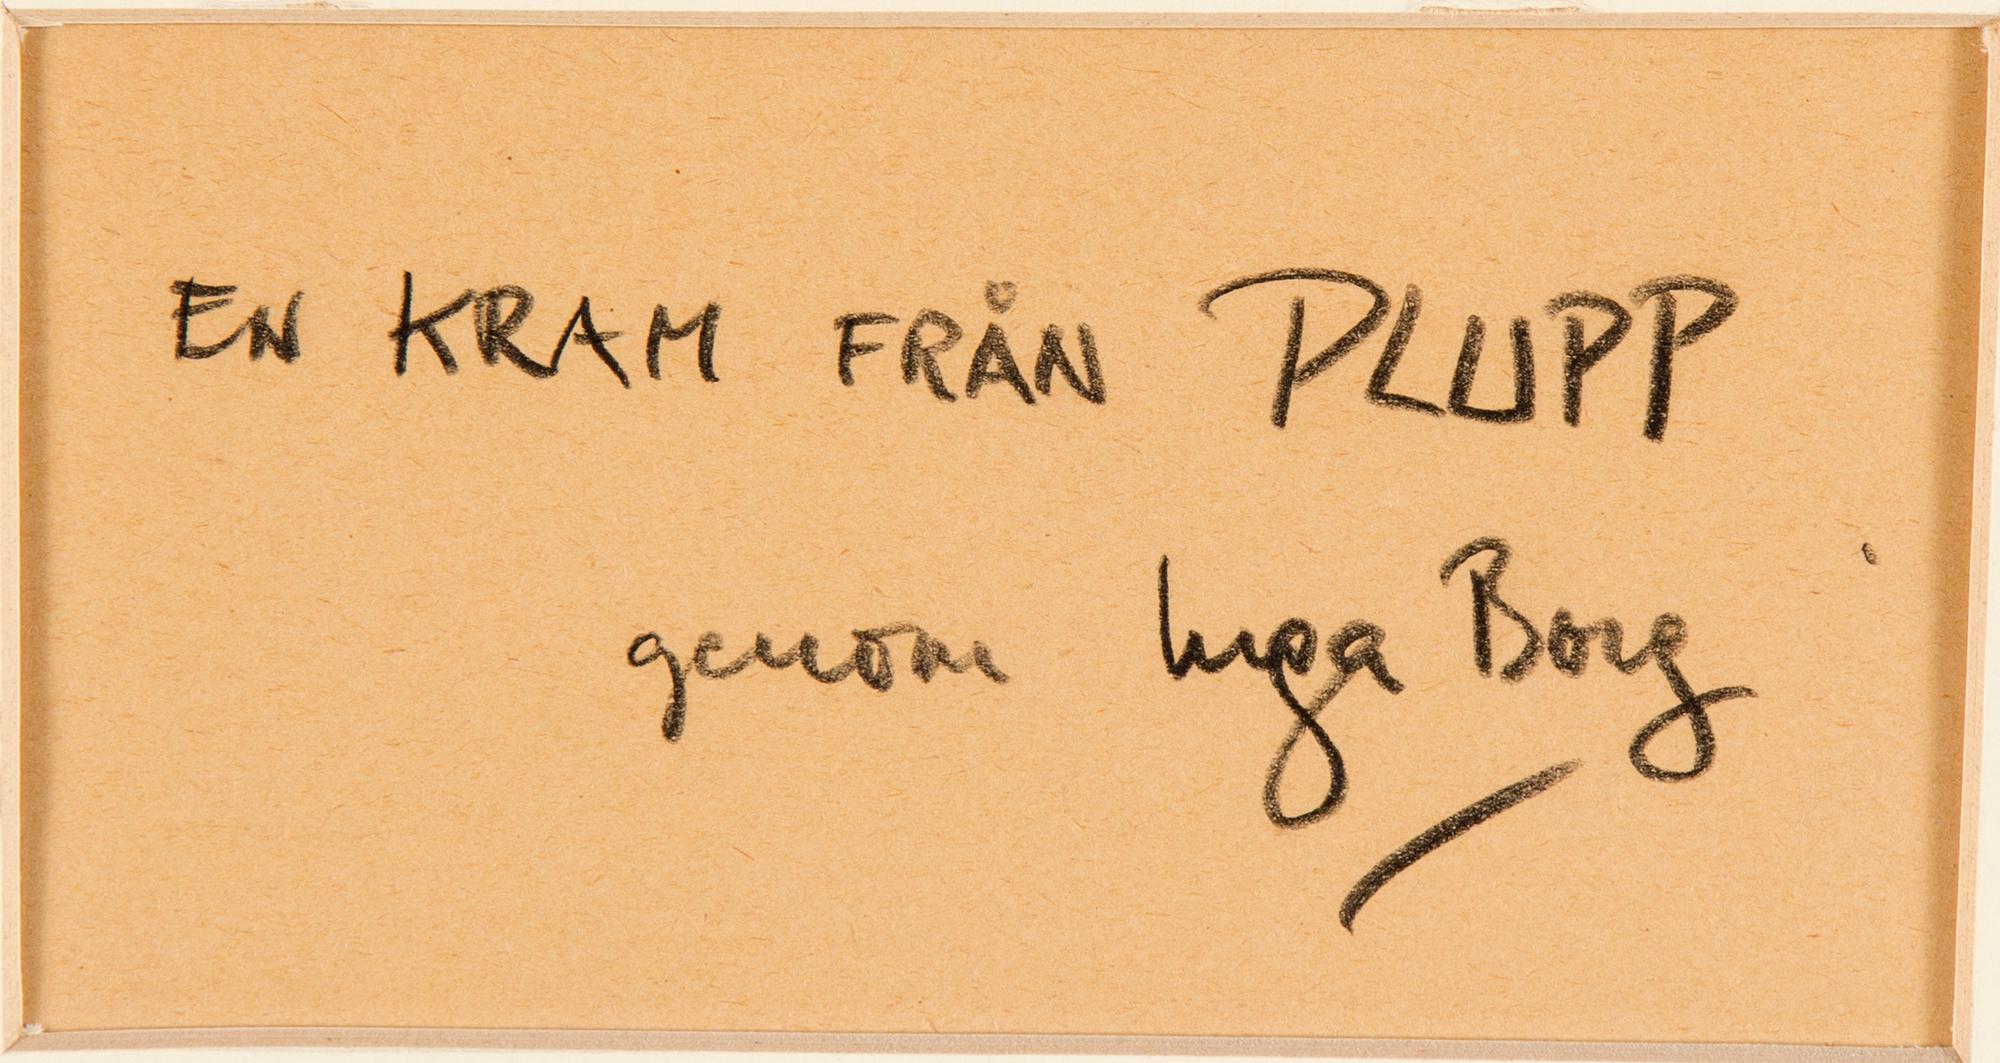 EN KRAM FRÅN PLUPP
genom Inga Borg